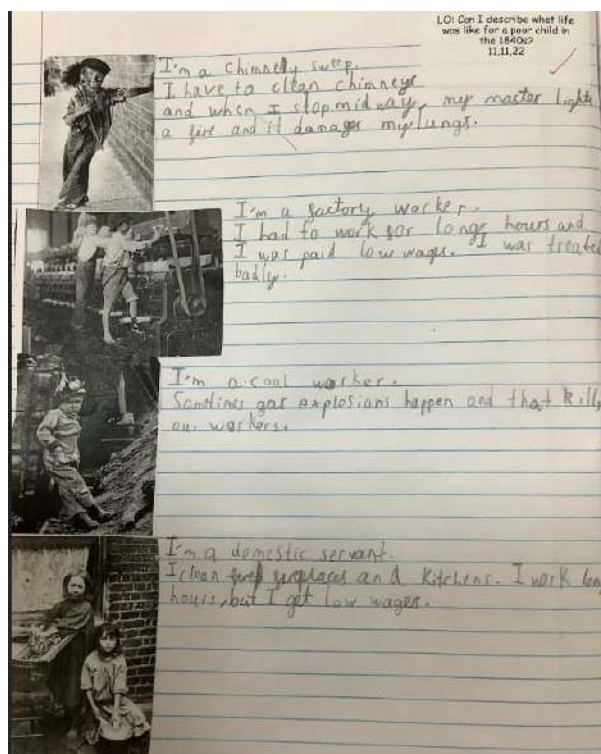 LO: Can I describe what life
was like for a poor child in
the 1840s?
11.11.22
I'm a chimnely sweep.
I have to clean chimneys
and when I stop mid way, my master lights
a fire and it damages my lungs.
I'm a factory worker.
I had to work for longe hours and
I was paid low wages. I was treated
badly.
I'm a coal worker.
Somtimes gas explosions happen and that kills
our workers.
I'm a domestic servant.
I clean fireplaces and kitchens. I work long
hours, but I get low wages.